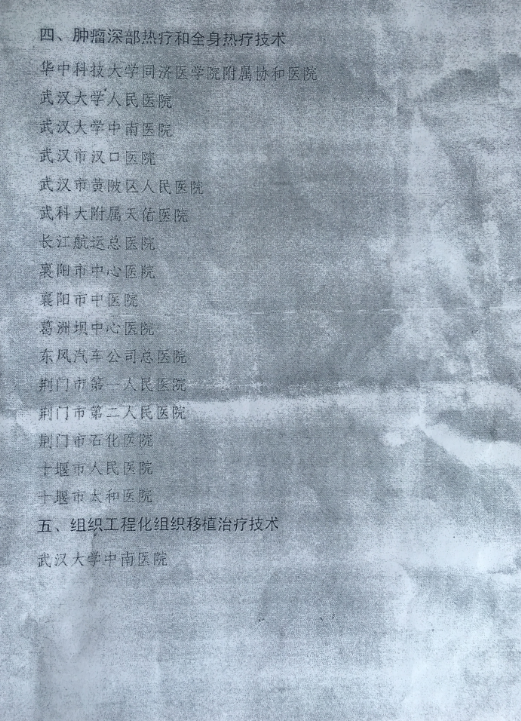 四、肿瘤深部热疗和全身热疗技术
华中科技大学同济医学院附属协和医院
武汉大学人民医院
武汉大学中南医院
武汉市汉口医院
武汉市黄陂区人民医院
武科大附属天佑医院
长江航运总医院
襄阳市中心医院
襄阳市中医院
葛洲坝中心医院
东风汽车公司总医院
荆门市第一人民医院
荆门市第二人民医院
荆门市石化医院
十堰市人民医院
十堰市太和医院
五、组织工程化组织移植治疗技术
武汉大学中南医院